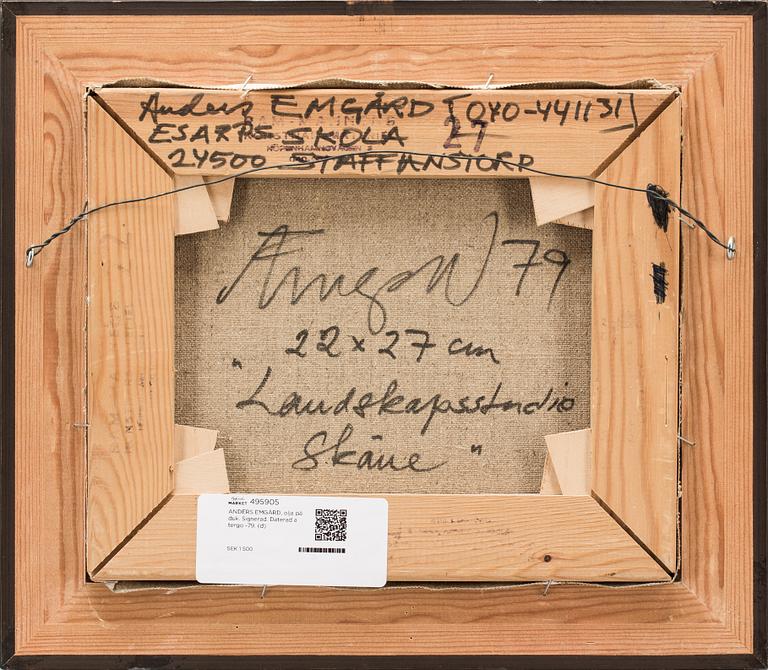 Anders EMGÅRD [040-441131]
ESARPS SKOLA 27
24500 STAFFANSTORP
KÖPENHAMNSVÄGEN
Emgård 79
22 x 27 cm
"Landskapsstudie
Skåne"
MARKET 495905
ANDERS EMGÅRD, olja på
duk. Signerad. Daterad a
tergo -79. (d)
SEK 1 500